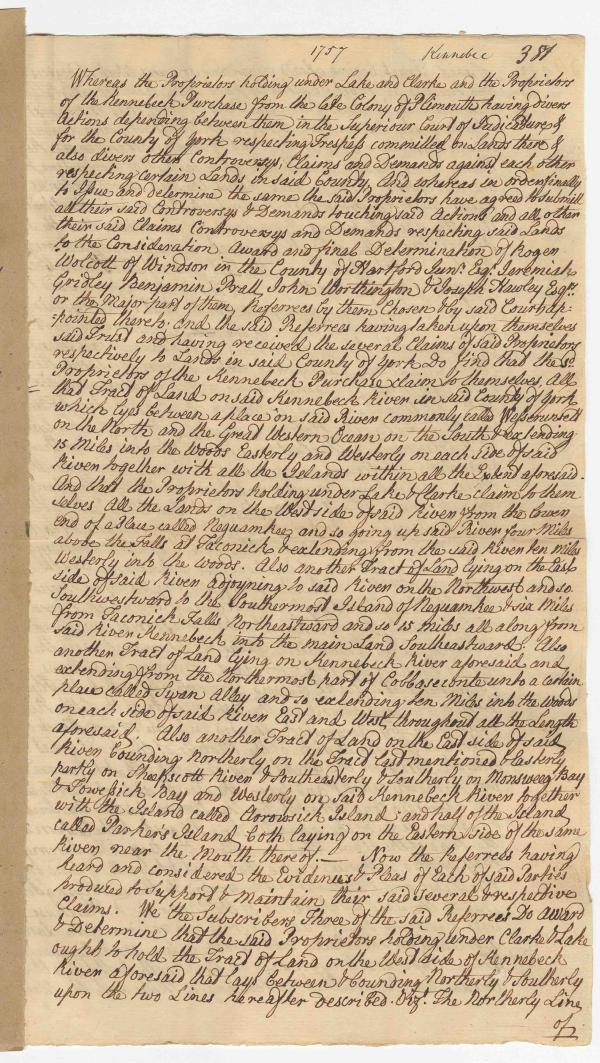 1757 Kennebec 381
Whereas the Proprietors holding under Lake and Clarke and the Proprietors
of the Kennebeck Purchase from the late Colony of Plimouth having divers
Actions depending between them in the Superiour Court of Judicature &
for the County of York respecting Trespass committed on Lands there &
also divers other Controversys, Claims and Demands against each other
respecting certain Lands in said County, And whereas in order finally
to Issue and determine the same the said Proprietors have agreed to submitt
all their said Controversys & Demands touching said Actions and all other
their said Claims Controversys and Demands respecting said Lands
to the Consideration Award and final Determination of Roger
Wolcott of Windsor in the County of Hartford Junr. Esq. Jeremiah
Gridley Benjamin Pratt John Worthington & Joseph Hawley Esqrs.
or the Major part of them, Referrees by them Chosen & by said Court ap=
=pointed thereto, and the said Referrees having taken upon themselves
said Trust and having received the several Claims of said Proprietors
respectively to Lands in said County of York Do find that the sd.
Proprietors of the Kennebeck Purchase claim to themselves All
that Tract of Land on said Kennebeck River in said County of York
which lyes between a place on said River commonly called Wesserunsett
on the North and the Great Western Ocean on the South & extending
15 Miles into the Woods Easterly and Westerly on each side of said
River together with all the Islands within all the Extent aforesaid.
And that the Proprietors holding under Lake & Clarke claim to them
selves All the Lands on the West side of said River from the Lower
end of a Place called Neguamkee, and so going up said River four Miles
above the Falls at Taconick & extending from the said River ten Miles
Westerly into the Woods. Also another Tract of Land lying on the East
side of said River adjoyning to said River on the Northwest and so
Southwestward to the Southermost Island of Neguamkee & six Miles
from Taconick Falls Northeastward and so 15 miles all along from
said River Kennebeck into the main Land Southeastward: Also
another Tract of Land lying on Kennebeck River aforesaid and
extending from the Northermost part of Cobbaseconte unto a Certain
place called Swan Alley and so extending ten Miles into the Woods
on each side of said River East and West, throughout all the Length
aforesaid. Also another Tract of Land on the East side of said
River bounding Northerly on the Tract last mentioned Easterly
partly on Sheepscott River & Southeasterly & Southerly on Monsweeg Bay
& Towessick Bay and Westerly on said Kennebeck River together
with the Island called Arrowsick Island; and half of the Island
called Parkers Island both laying on the Eastern side of the same
River near the Mouth thereof. — Now the Referrees having
heard and considered the Evidences & Pleas of Each of said Parties
produced to Support & Maintain their said several & respective
Claims. We the Subscribers Three of the said Referrees Do award
& Determine that the said Proprietors holding under Clarke & Lake
ought to hold the Tract of Land on the West side of Kennebeck
River aforesaid that lays between & bounding Northerly & Southerly
upon the two Lines hereafter described. Vizt. The Northerly Line
of